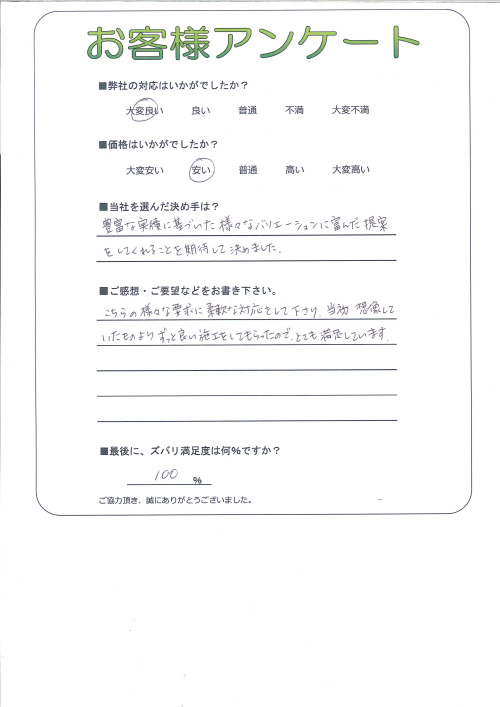 お客様アンケート
■弊社の対応はいかがでしたか？
大変良い 良い 普通 不満 大変不満
■価格はいかがでしたか？
大変安い 安い 普通 高い 大変高い
■当社を選んだ決め手は？
豊富な実績に基づいた様々なバリエーションに富んだ提案
をしてくれることを期待して決めました.
■ご感想・ご要望などをお書き下さい。
こちらの様々な要求に柔軟な対応をして下さり、当初 想像して
いたものよりずっと良い施工をしてもらったので、とても満足しています.
■最後に、ズバリ満足度は何%ですか？
100 %
ご協力頂き、誠にありがとうございました。